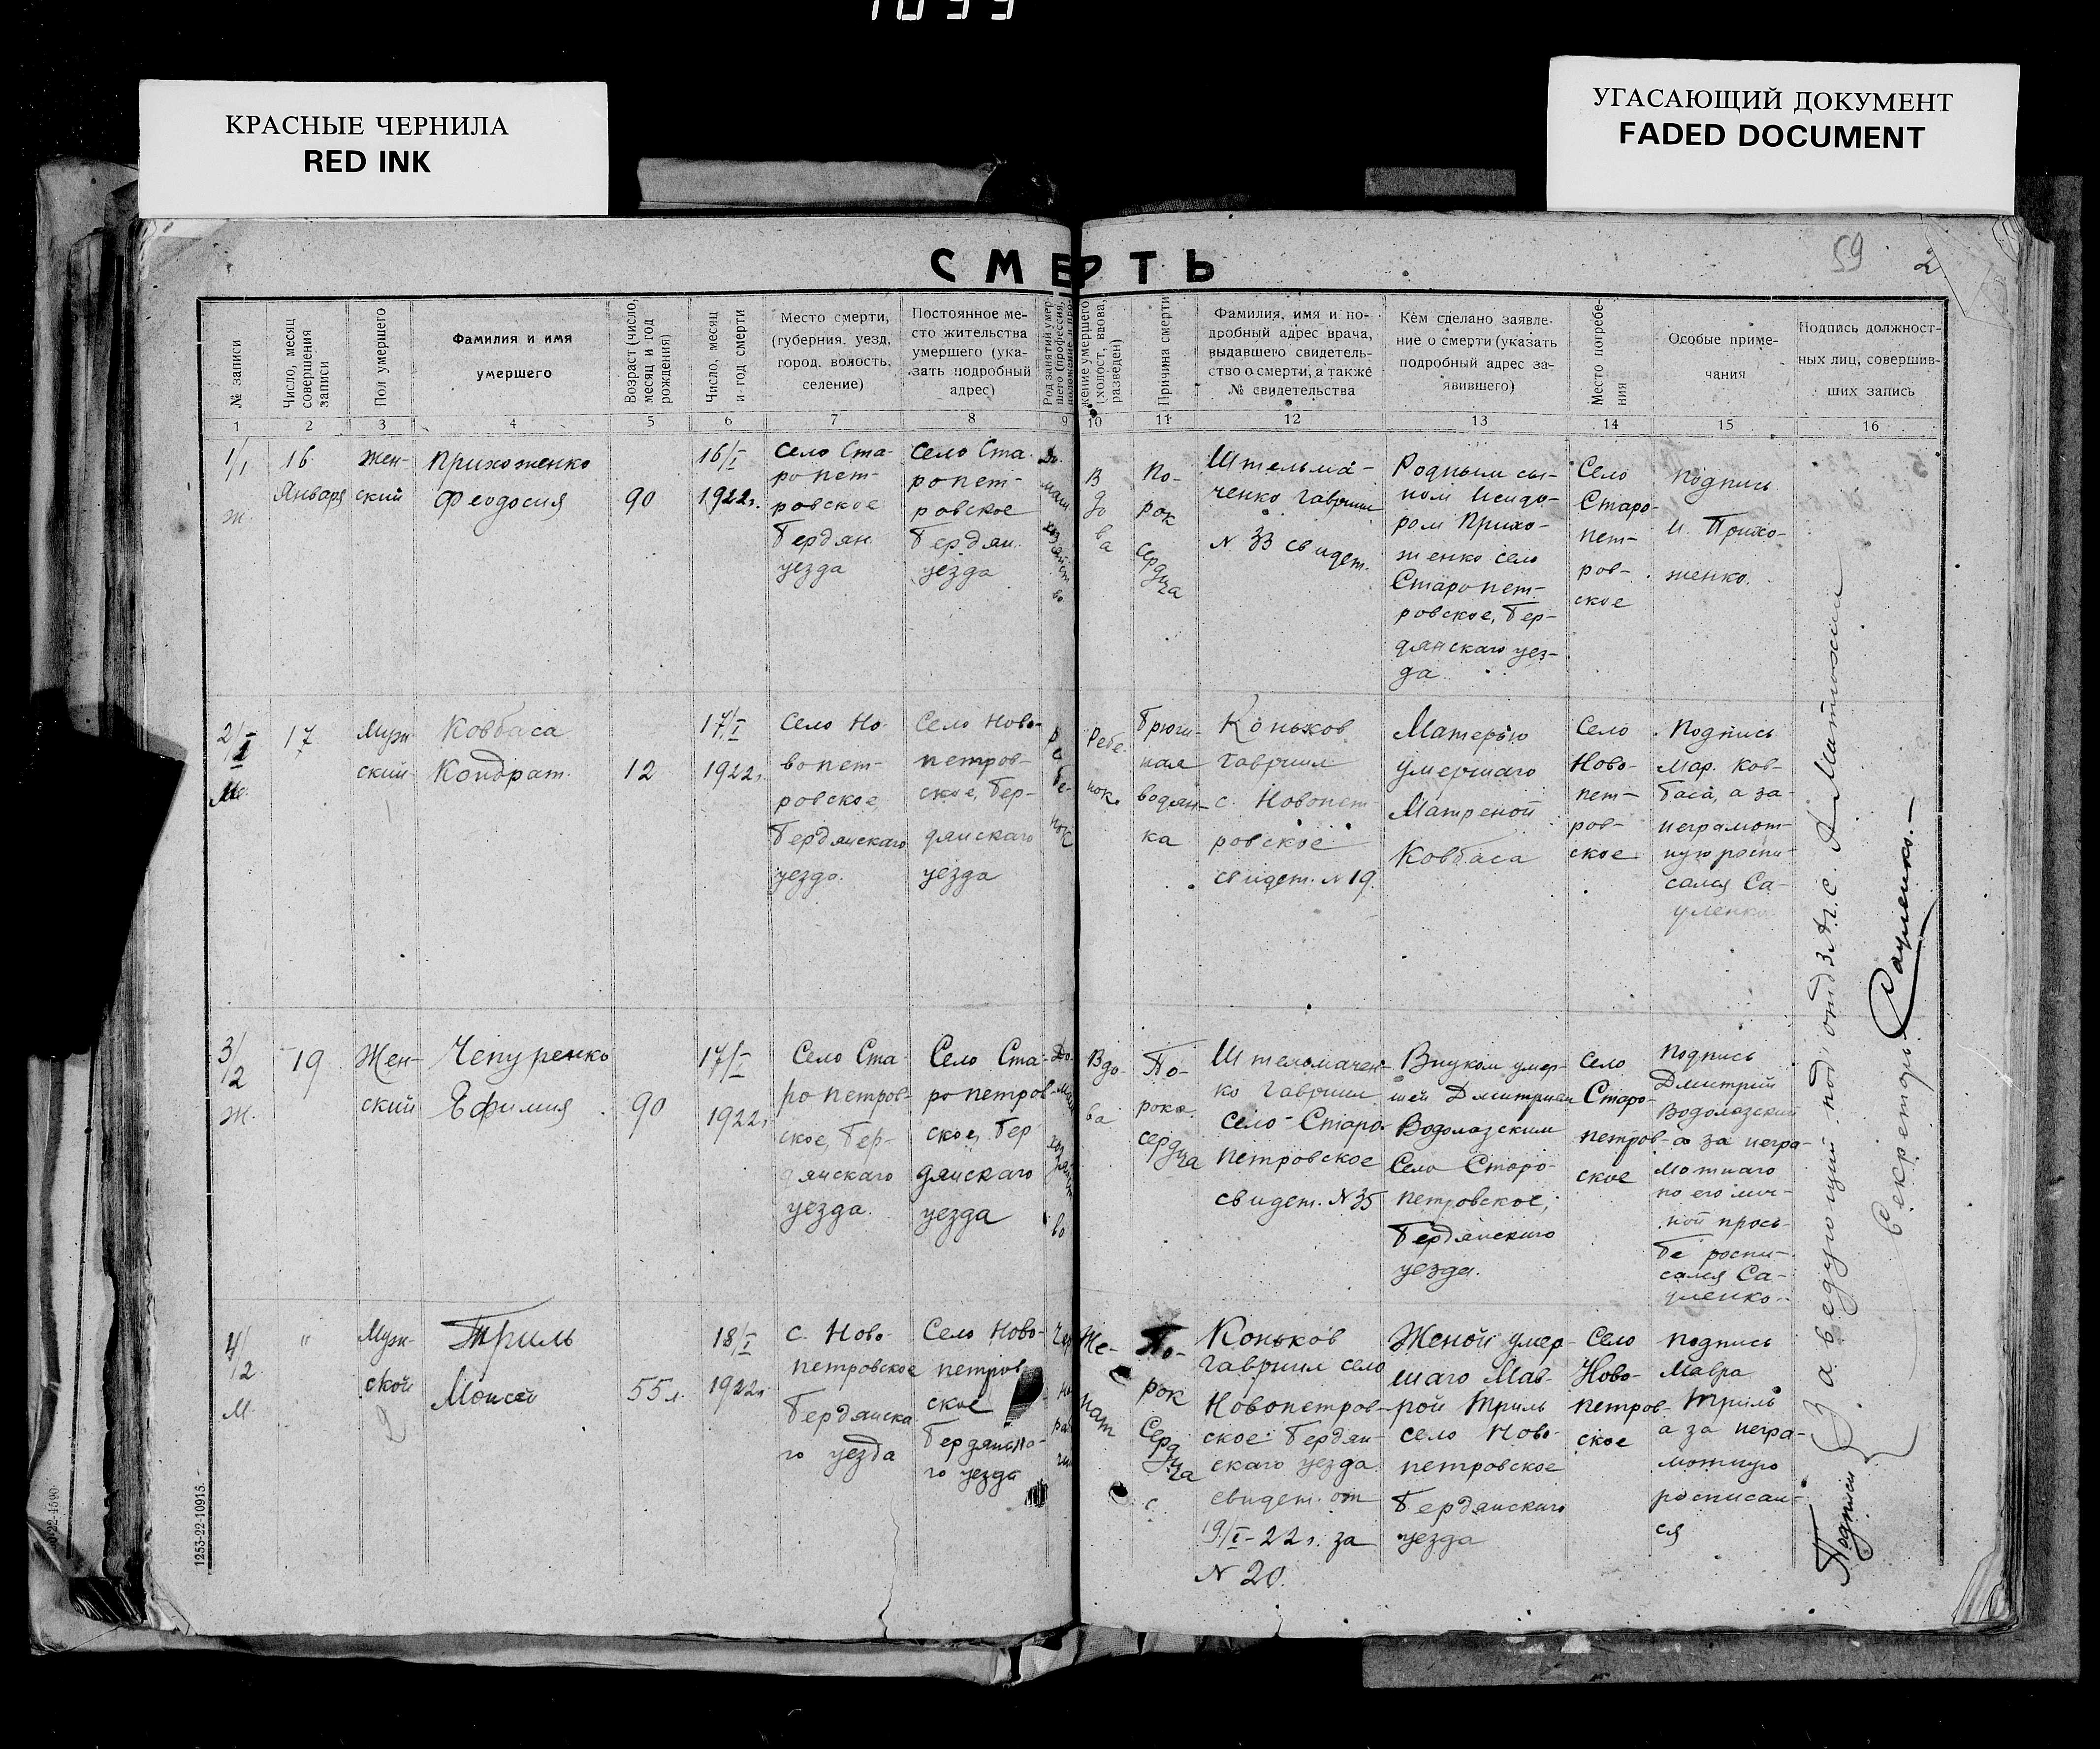 1099
КРАСНЫЕ ЧЕРНИЛА
RED INK
УГАСАЮЩИЙ ДОКУМЕНТ
FADED DOCUMENT
59
2
СМЕРТЬ
№ записи
Число, месяц
совершения
записи
Пол умершего
Фамилия и имя
умершего
Возраст (число,
месяц и год
рождения)
Число, месяц
и год смерти
Место смерти,
(губерния, уезд,
город, волость,
селение)
Постоянное ме-
сто жительства
умершего (ука-
зать подробный
адрес)
Род занятий умер
шего (профессия,
жение умершего
(холост, вдова,
разведен)
Причина смерти
Фамилия, имя и по-
дробный адрес врача,
выдавшего свидетель-
ство о смерти, а также
№ свидетельства
Кем сделано заявле-
ние о смерти (указать
подробный адрес за-
явившего)
Место погребе-
ния
Особые приме-
чания
Подпись должност-
ных лиц, совершив-
ших запись
1 2 3 4 5 6 7 8 9 10 11 12 13 14 15 16
1/1
ж.
16
Января
Жен-
ский
Прихоженко
Феодосия
90
16/I
1922г.
Село Ста-
ропет-
ровское
Бердян.
уезда
Село Ста-
ропет-
ровское
Бердян.
уезда
До-
маш
хозяйст
во
В
до
в
а
По-
рок
серд
ца
Штельма-
ченко Гавриил
N 33 свидет.
Родным сы-
ном Исидо-
ром Прихо-
женко село
Старопет-
ровское, Бер-
дянскаго уез-
да
Село
Старо-
пет-
ров-
ское
Подпись
И. Прихо-
женко.
2/1
М.
17
Муж-
ский
Ковбаса
Кондрат.
12
17/I
1922г.
Село Но-
вопет-
ровское,
Бердянскаго
уезда.
Село Ново-
петров-
ское, Бер-
дянскаго
уезда
Ре
бе-
нок
Ребе-
нок.
Брюш-
ная
водян-
ка
Коньков
Гавриил
с. Новопет-
ровское
свидет. N 19.
Матерью
умершаго
Матреной
Ковбаса
Село
Ново-
пет-
ров-
ское
Подпись
Мар. Ков-
баса, а за
неграмот-
ную распи-
сался Са-
уленко.
3/2
ж.
19
Жен-
ский
Чепуренко
Ефимия
90
17/I
1922г.
Село Ста-
ропетров-
ское, Бер-
дянскаго
уезда.
Село Ста-
ропетров-
ское, Бер
дянскаго
уезда
До-
маш
хозяйст
во
Вдо-
ва
По-
рок.
сердца
Штельмачен-
ко Гавриил
село Старо-
петровское
свидет. N 35
Внуком умер-
шей Дмитрием
Водолазским
Село Старо-
петровское,
Бердянскаго
уезда.
Село
Старо-
петров-
ское
Подпись
Дмитрий
Водолазский
а за негра-
мотнаго
по его лич-
ной прось-
бе распи-
сался Са-
уленко.
4/2
М.
"
Муж-
ской
Триль
Моисей
55л.
18/I
1922г.
с. Ново-
петровское
Бердянска
го уезда
Село Ново-
петров
ское
Бердянска-
го уезда
Чер
но
ра
Же-
нат
По-
рок
Серд
ца
Коньков
Гавриил село
Новопетров-
ское Бердян-
скаго уезда
свидет. от
19/I-22г. за
N 20.
Женой умер-
шаго Мав-
рой Триль
село Ново-
петровское
Бердянскаго
уезда
Село
Ново-
петров-
ское
Подпись
Мавра
Триль
а за негра-
мотную
расписал-
ся
Подписи
Заведующий под'отд З.А.Г.С.
Секретарь Сауленко.
1253-22-10915.